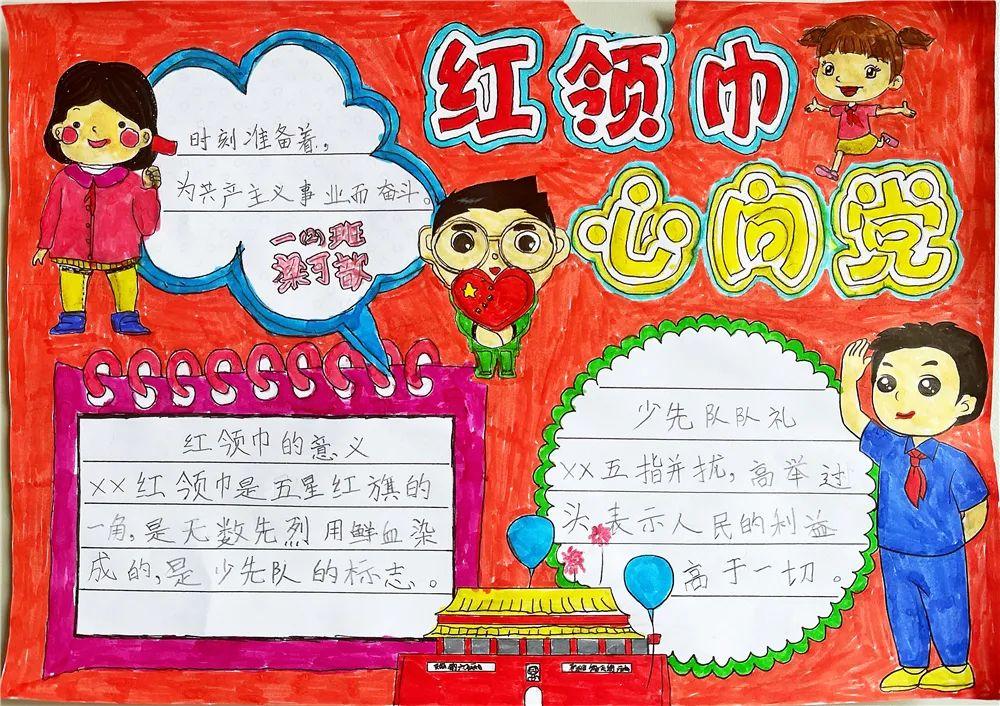 红领巾
心向党
时刻准备着，
为共产主义事业而奋斗。
一(2)班
梁可歆
红领巾的意义
××红领巾是五星红旗的
一角，是无数先烈用鲜血染
成的，是少先队的标志。
少先队队礼
××五指并扰，高举过
头，表示人民的利益
高于一切。